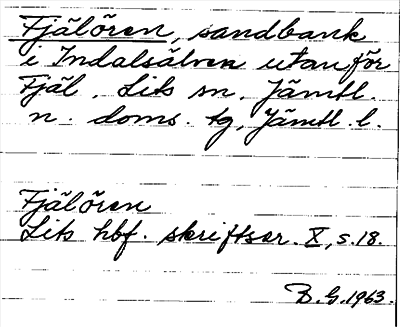 Fjälören, sandbank
i Indalsälven utanför
Fjäl. Lits sn. Jämtl.
n. doms. tg, Jämtl. l.
Fjälören
Lits hbf. skriftser. X, s. 18.
B. G. 1963.